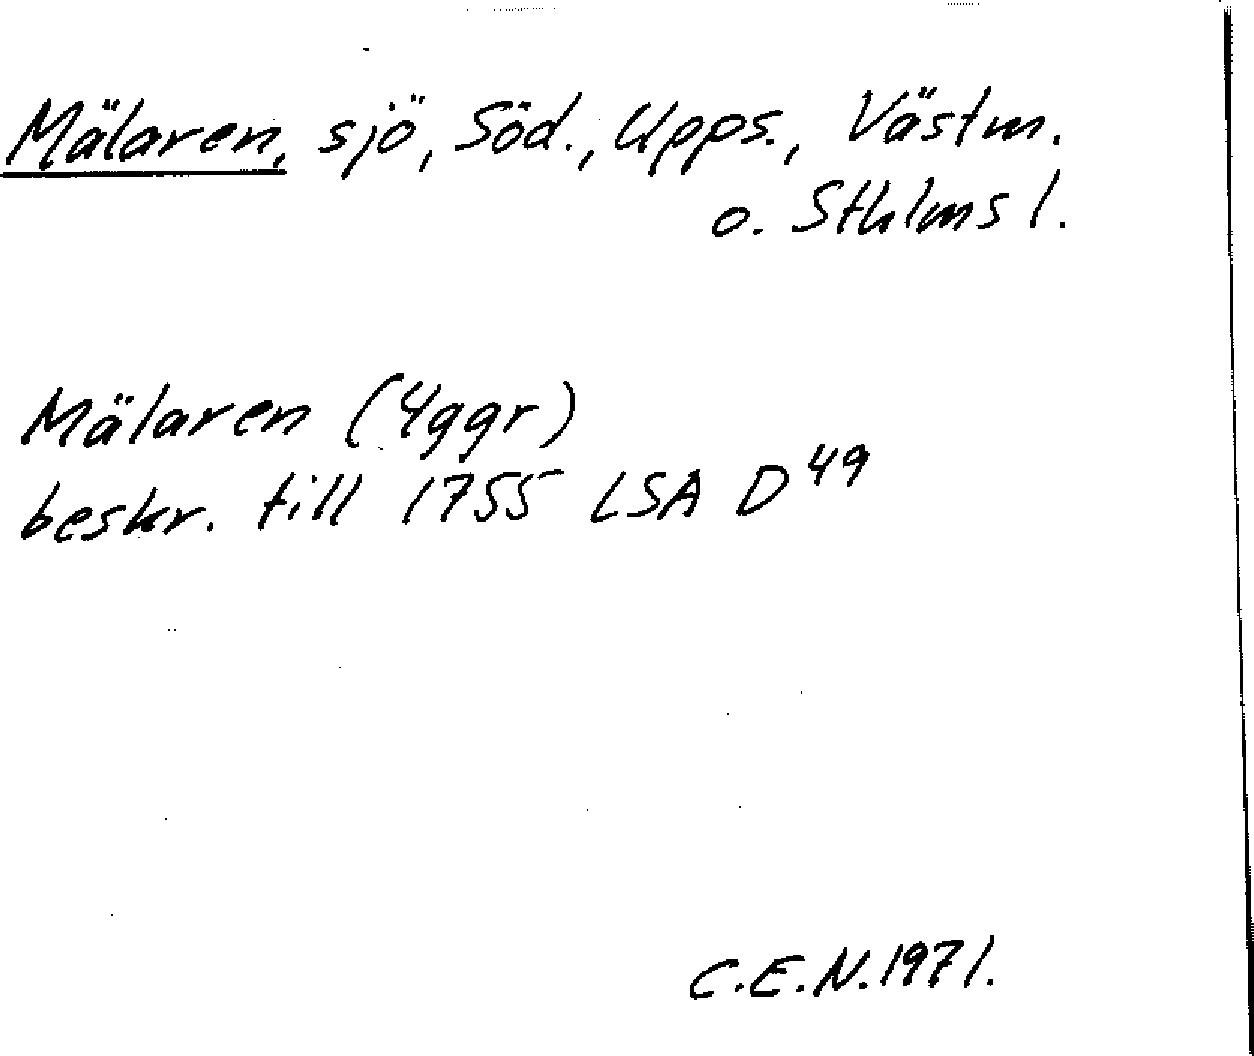 Mälaren, sjö, Söd., Upps., Västm.
o. Sthlms l.
Mälaren (4ggr)
beskr. till 1755 LSA D 49
C.E.N. 1971.